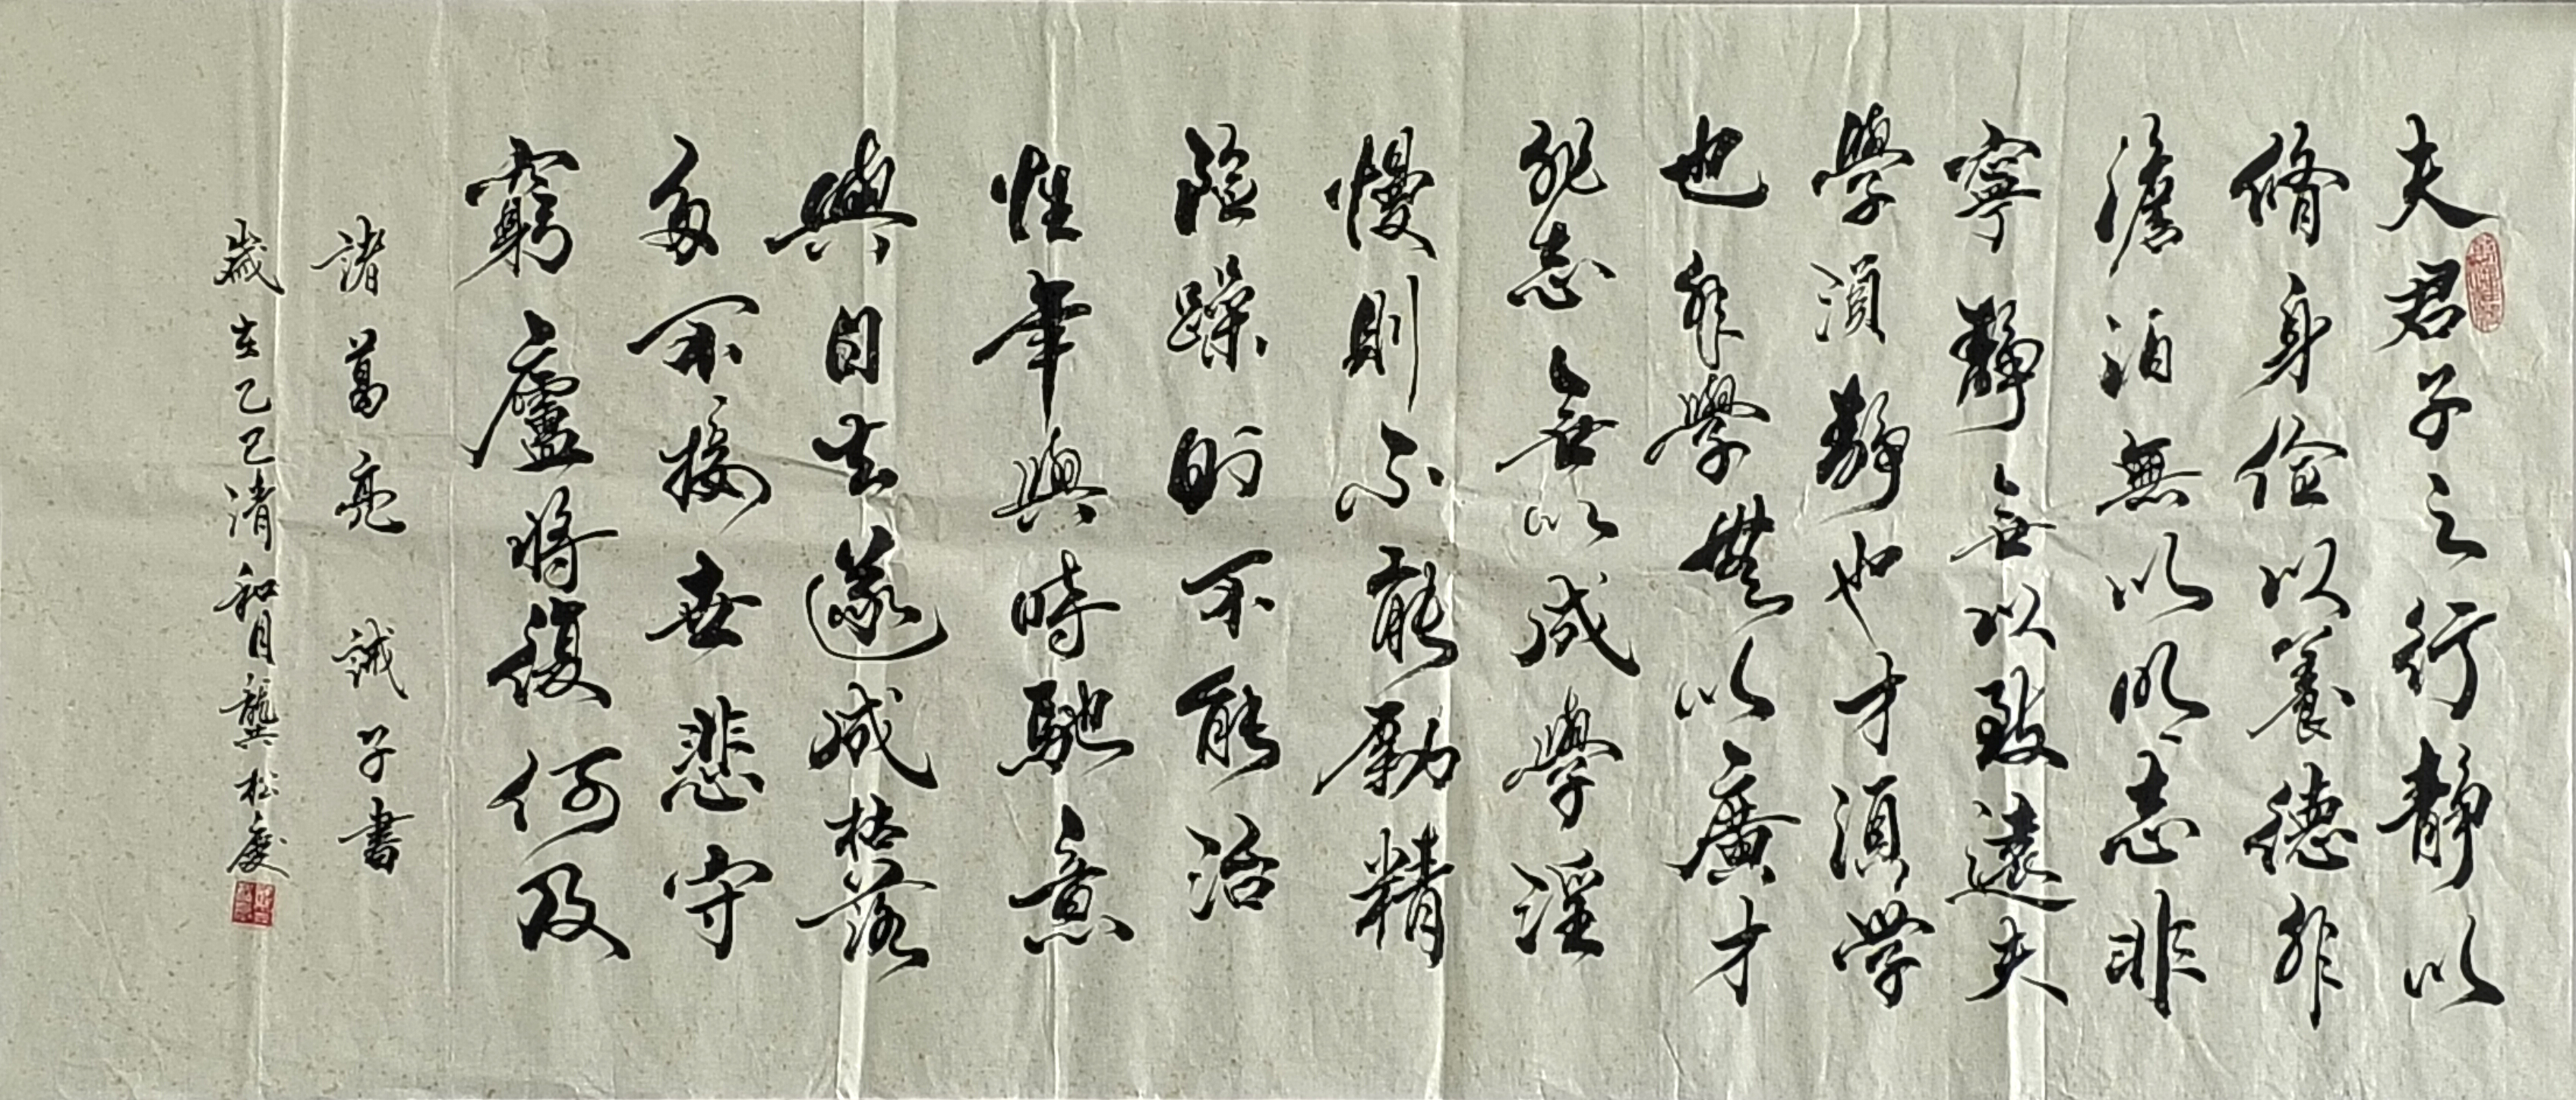 夫君子之行静以
脩身儉以養德非
澹泊無以明志非
寧靜無以致遠夫
學須靜也才須學
也非學無以廣才
非志無以成學淫
慢則不能勵精
險躁則不能治
性年與時馳意
與日去遂成枯落
多不接世悲守
窮廬將復何及
諸葛亮 誡子書
歲在乙巳清和月龔松慶